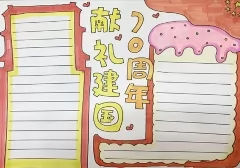 献礼建国
70周年